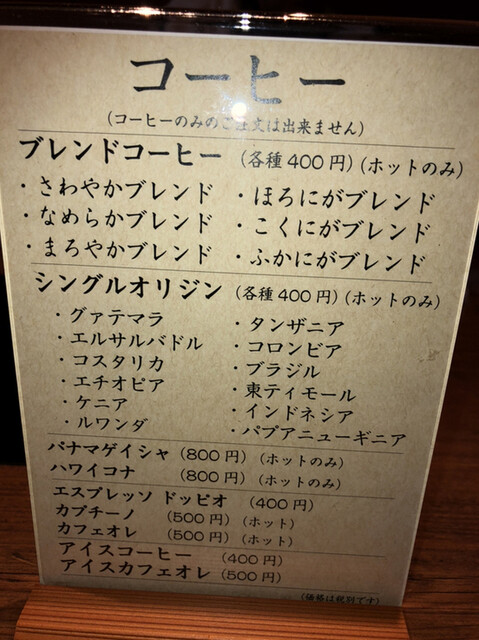 コーヒー
(コーヒーのみのご注文は出来ません)
ブレンドコーヒー (各種400円) (ホットのみ)
・さわやかブレンド ・ほろにがブレンド
・なめらかブレンド ・こくにがブレンド
・まろやかブレンド ・ふかにがブレンド
シングルオリジン (各種400円) (ホットのみ)
・グァテマラ ・タンザニア
・エルサルバドル ・コロンビア
・コスタリカ ・ブラジル
・エチオピア ・東ティモール
・ケニア ・インドネシア
・ルワンダ ・パプアニューギニア
パナマゲイシャ (800円) (ホットのみ)
ハワイコナ (800円) (ホットのみ)
エスプレッソ ドッピオ (400円)
カプチーノ (500円) (ホット)
カフェオレ (500円) (ホット)
アイスコーヒー (400円)
アイスカフェオレ (500円)
(価格は税別です)